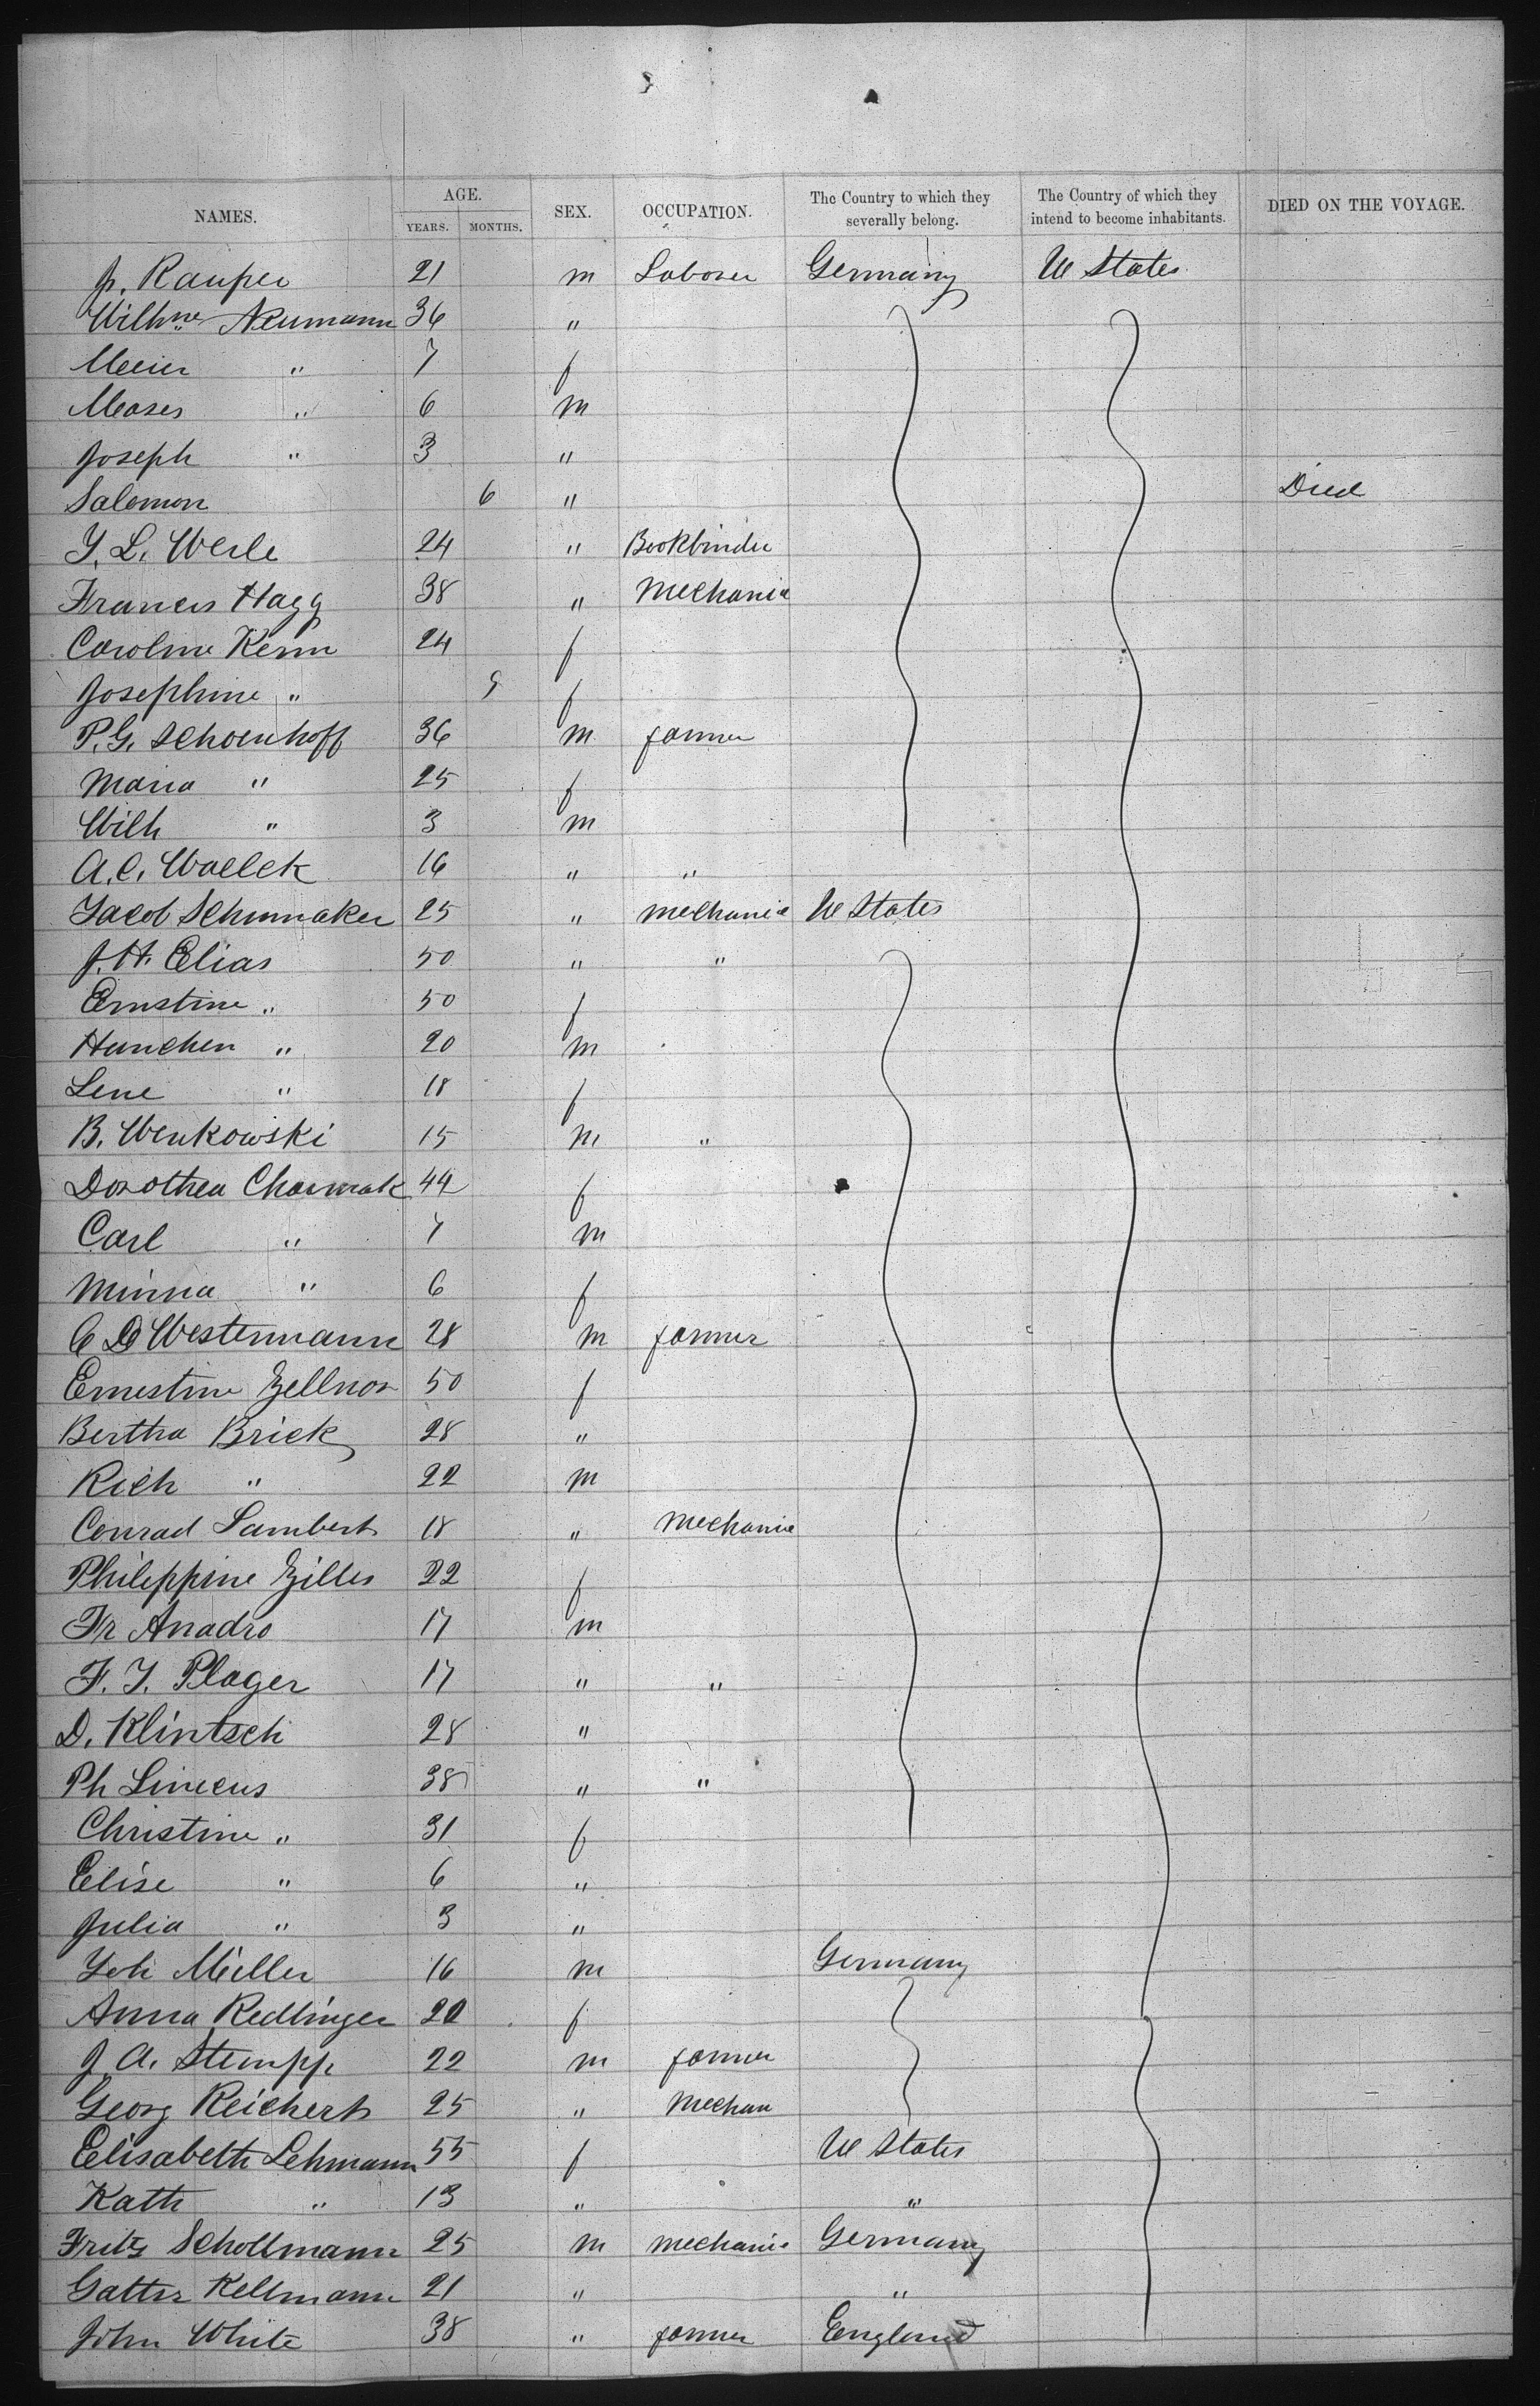 NAMES. AGE. SEX. OCCUPATION. The Country to which they severally belong. The Country of which they intend to become inhabitants. DIED ON THE VOYAGE.
YEARS. MONTHS.
J. Rauper 21 m Laborer Germany U States
Wilhne Neumann 36 "
Meier " 7 f
Moses " 6 m
Joseph " 3 "
Salomon 6 " Died
J. L. Werle 24 " Bookbinder
Francis Hagg 38 " Mechanic
Caroline Kenn 24 f
Josephine " 9 f
P. G. Schoenhoff 36 m farmer
Maria " 25 f
Wilh " 3 m
A. C. Woelck 16 " "
Jacob Schumaker 25 " mechanic U States
J. H. Elias 50 " "
Ernstine " 50 f
Hanchen " 20 m
Lene " 18 f
B. Wenkowski 15 m "
Dorothea 44 f
Carl " 7 m
Minna " 6 f
C D Westermann 28 m farmer
Ernestine Zellnor 50 f
Bertha Brick 28 "
Rich " 22 m
Conrad Lambert 18 " Mechanic
Philippine Zilles 22 f
Fr Anadro 17 m
F. J. Plager 17 " "
D. Klintsch 28 "
Ph Linicus 38 " "
Christine " 31 f
Elise " 6 "
Julia " 3 "
Joh Müller 16 m Germany
Anna Redlinger 20 f
J. A. Stempp 22 m farmer
Georg Reichert 25 " Mechan
Elisabeth Lehmann 55 f U States
Kath " 13 " "
Fritz Schollmann 25 m mechanic Germany
Kellmann 21 " "
John White 38 " farmer England